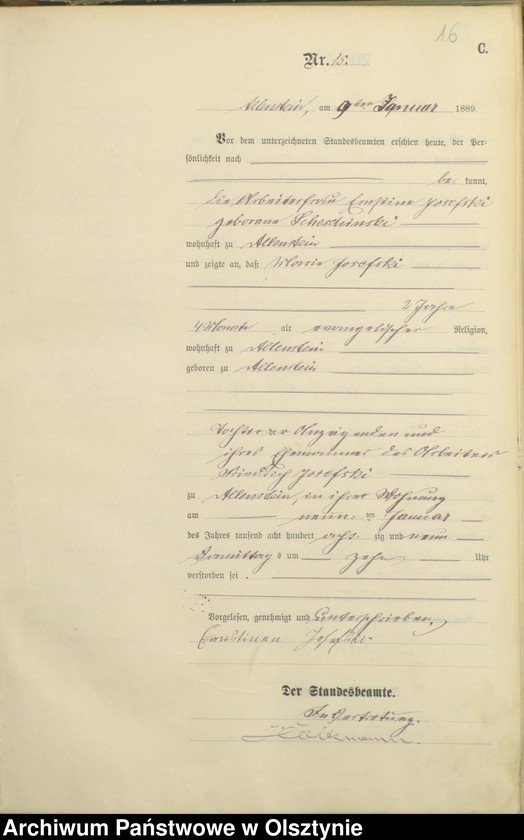 16
C.
Nr. 15.
Allenstein, am 9ten Januar 1889
Vor dem unterzeichneten Standesbeamten erschien heute, der Per-
sönlichkeit nach
be kannt,
die Arbeiterfrau Ernstine Josefski
geborene
wohnhaft zu Allenstein
und zeigte an, daß Marie Josefski
2 Jahre
4 Monate alt evangelischer Religion,
wohnhaft zu Allenstein
geboren zu Allenstein
Tochter der Anzeigenden und
ihres Ehemannes des Arbeiters
Friedrich Josefski
zu Allenstein, in ihrer Wohnung
am neun ten Januar
des Jahres tausend acht hundert acht zig und neun
Vormittags um zehn Uhr
verstorben sei.
Vorgelesen, genehmigt und unterschrieben.
Josefski.
Der Standesbeamte.
In Vertretung.
Archiwum Państwowe w Olsztynie